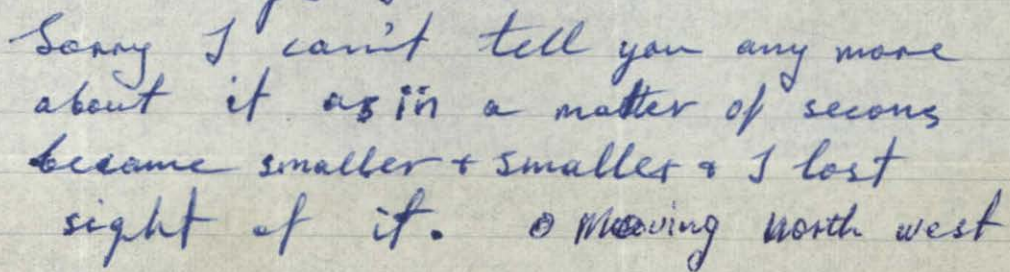 Sorry I can't tell you any more
about it as in a matter of secons
became smaller + smaller + I lost
sight of it. Moving north west